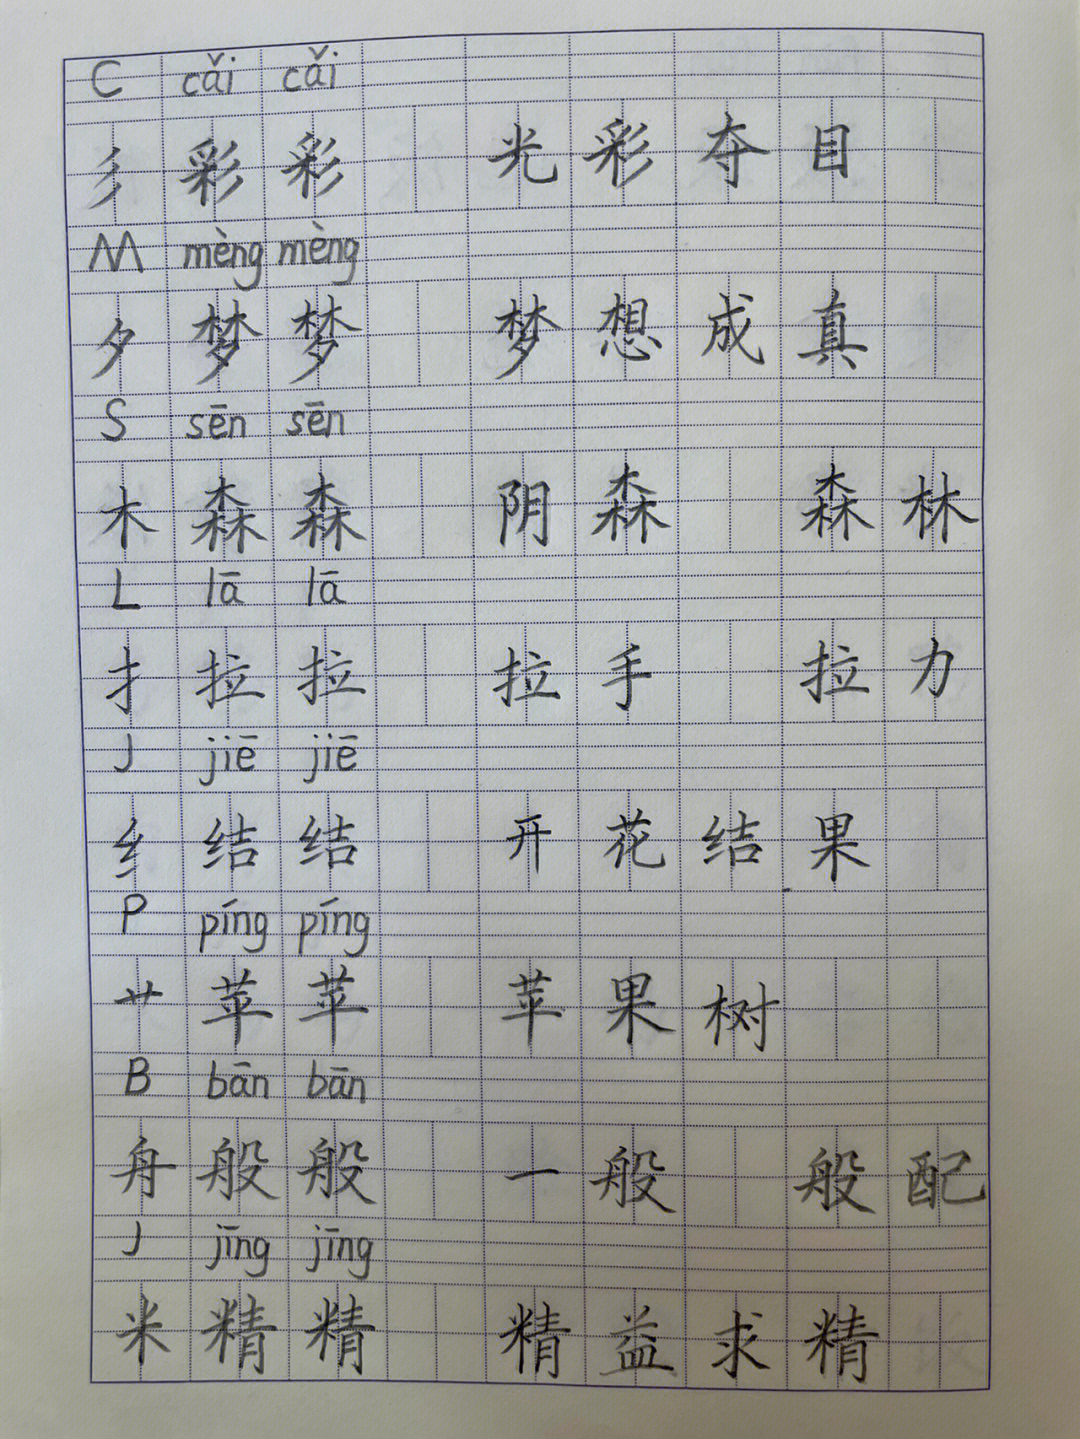 C cǎi cǎi
彡 彩 彩 光 彩 夺 目
M mèng mèng
夕 梦 梦 梦 想 成 真
S sēn sēn
木 森 森 阴 森 森 林
L lā lā
扌 拉 拉 拉 手 拉 力
J jiē jiē
纟 结 结 开 花 结 果
P píng píng
艹 苹 苹 苹 果 树
B bān bān
舟 般 般 一 般 般 配
J jīng jīng
米 精 精 精 益 求 精